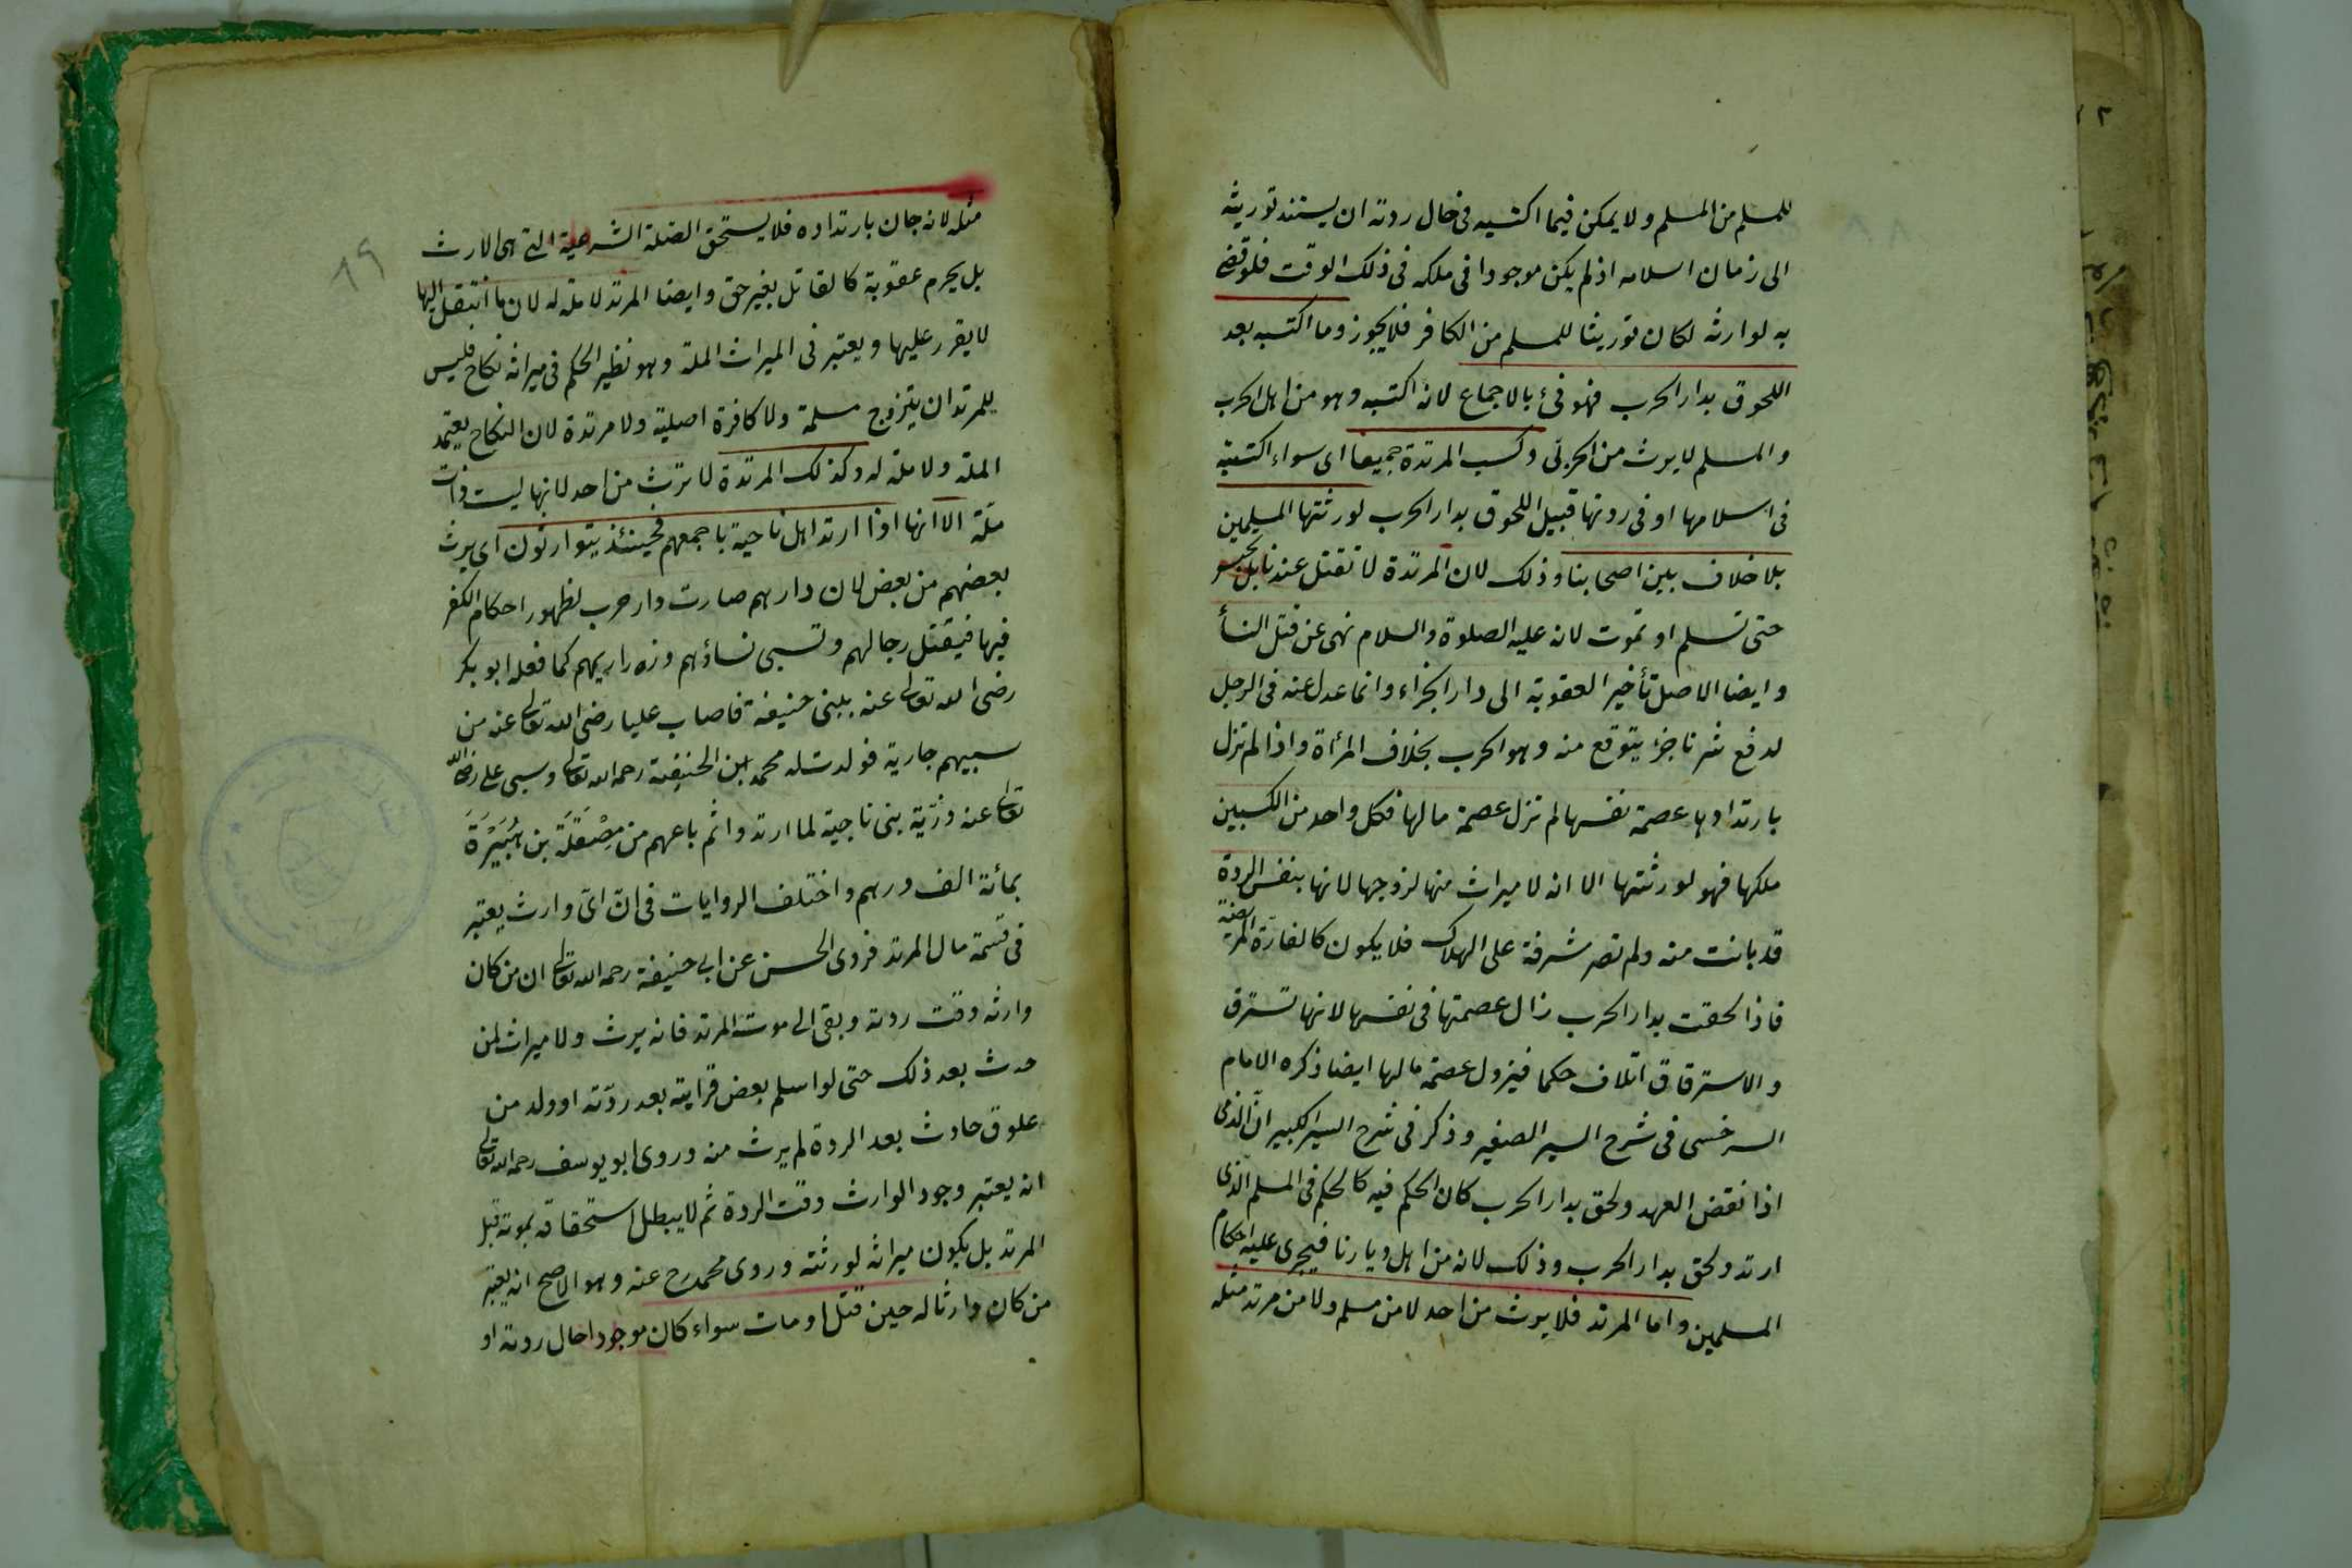 للمسلم من المسلم ولا يمكن فيما اكتسبه فى حال ردته ان يستند توريثه
الى زمان اسلامه اذ لم يكن موجودا فى ملكه فى ذلك الوقت فلو قضى
به لوارثه لكان توريثا للمسلم من الكافر فلا يجوز وما اكتسبه بعد
اللحوق بدار الحرب فهو فئ بالاجماع لانه اكتسبه وهو من اهل الحرب
والمسلم لا يرث من الحربى وكسب المرتدة جميعا اى سواء اكتسبته
فى اسلامها او فى ردتها قبيل اللحوق بدار الحرب لورثتها المسلمين
بلا خلاف بين اصحابنا وذلك لان المرتدة لا تقتل عندنا بل تحبس
حتى تسلم او تموت لانه عليه الصلوة والسلام نهى عن قتل النسأ
وايضا الاصل تأخير العقوبة الى دار الجزاء وانما عدل عنه فى الرجل
لدفع شر ناجز يتوقع منه وهو الحرب بخلاف المرأة واذا لم تزل
بارتدادها عصمة نفسها لم تزل عصمة مالها فكل واحد من الكسبين
ملكها فهو لورثتها الا انه لا ميراث منها لزوجها لانها بنفس الردة
قد بانت منه ولم تصر مشرفة على الهلاك فلا يكون كالفارّة المريضة
فاذا لحقت بدار الحرب زال عصمتها فى نفسها لانها تسترق
والاسترقاق اتلاف حكما فيزول عصمة مالها ايضا ذكره الامام
السرخسى فى شرح السير الصغير وذكر فى شرح السير الكبير انّ الذمى
اذا نقض العهد ولحق بدار الحرب كان الحكم فيه كالحكم فى المسلم الذى
ارتد ولحق بدار الحرب وذلك لانه من اهل ديارنا فيجرى عليه احكام
المسلمين واما المرتد فلا يرث من احد لا من مسلم ولا من مرتد مثله
٨٩
مثله لانه جان بارتداده فلا يستحق الصلة الشرعية التى هى الارث
بل يحرم عقوبة كالقاتل بغير حق وايضا المرتد لا ملة له لان ما انتقل اليها
لا يقرر عليها ويعتبر فى الميراث الملة وهو نظير الحكم فى ميراثه نكاح فليس
للمرتد ان يتزوج مسلمة ولا كافرة اصلية ولا مرتدة لان النكاح يعتمد
الملة ولا ملة له وكذلك المرتدة لا ترث من احد لانها ليست ذات
ملّة الا انها اذا ارتد اهل ناحية باجمعهم فحينئذ يتوارثون اى يرث
بعضهم من بعض لان دارهم صارت دار حرب لظهور احكام الكفر
فيها فيقتل رجالهم وتسبى نساؤهم وذراريهم كما فعله ابو بكر
رضى الله تعالى عنه ببنى حنيفة فاصاب عليا رضى الله تعالى عنه من
سبيهم جارية فولدت له محمد ابن الحنيفية رحمه الله تعالى وسبى على رضى الله
تعالى عنه ذرّية بنى ناجية لما ارتدوا ثم باعهم من مِصْقَلَة بن هُبَيْرَةَ
بمائة الف درهم واختلف الروايات فى انّ اىّ وارث يعتبر
فى قسمة مال المرتد فروى الحسن عن ابى حنيفة رحمه الله تعالى ان من كان
وارثه وقت ردته وبقى الى موت المرتد فانه يرث ولا ميراث لمن
حدث بعد ذلك حتى لو اسلم بعض قرابته بعد ردّته او ولد من
علوق حادث بعد الردة لم يرث منه وروى ابو يوسف رحمه الله تعالى
انه يعتبر وجود الوارث وقت الردة ثم لا يبطل استحقاقه بموته قبل
المرتد بل يكون ميراثه لورثته وروى محمد رح عنه وهو الاصح انه يعتبر
من كان وارثا له حين قتل او مات سواء كان موجودا حال ردته او